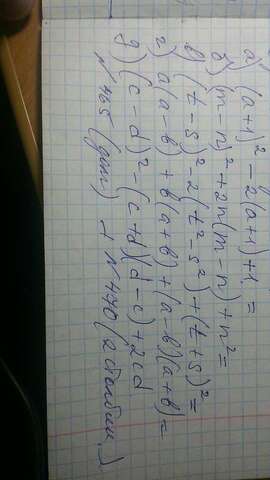 а) (a+1)² − 2(a+1) + 1 =
б) (m−n)² + 2n(m−n) + n² =
в) (t−s)² − 2(t²−s²) + (t+s)² =
г) a(a−b) + b(a+b) + (a−b)(a+b) =
д) (c−d)² − (c+d)(d−c) + 2cd
№ 465 (дом) → № 470 (2 столбик)